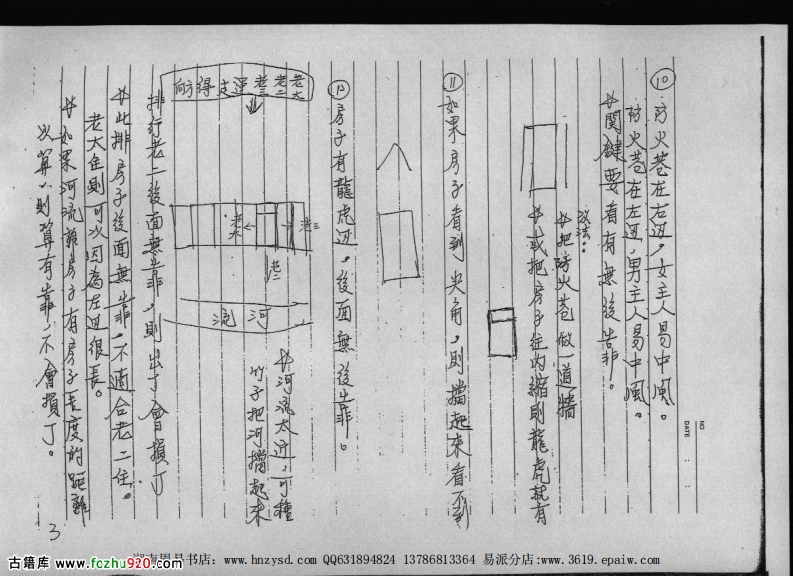 NO
DATE
⑩ 防火巷在右边，女主人易中風。
防火巷在左边，男主人易中風。
※関鍵要看有無後靠。
改法：
※把防火巷做一道牆
※或把房子往内縮則龍虎就有
⑪ 如果房子看到尖角，則擋起來看不到
⑫ 房子有龍虎边，後面無後靠。
老大 老二 老三 運走得方向
老三
老大
老二
河流
※河流太近，可種
竹子把河擋起來
排行老二後面無靠，則出丁會損丁
※此排房子後面無靠，不適合老二住。
老大住則可以因為左边很長。
※如果河流離房子有房子長度的距離
以算，則算有靠，不會損丁。
3
古籍库
www.fozhu920.com
湖南周易书店：www.hnzysd.com QQ631894824 13786813364 易派分店:www.3619.epaiw.com